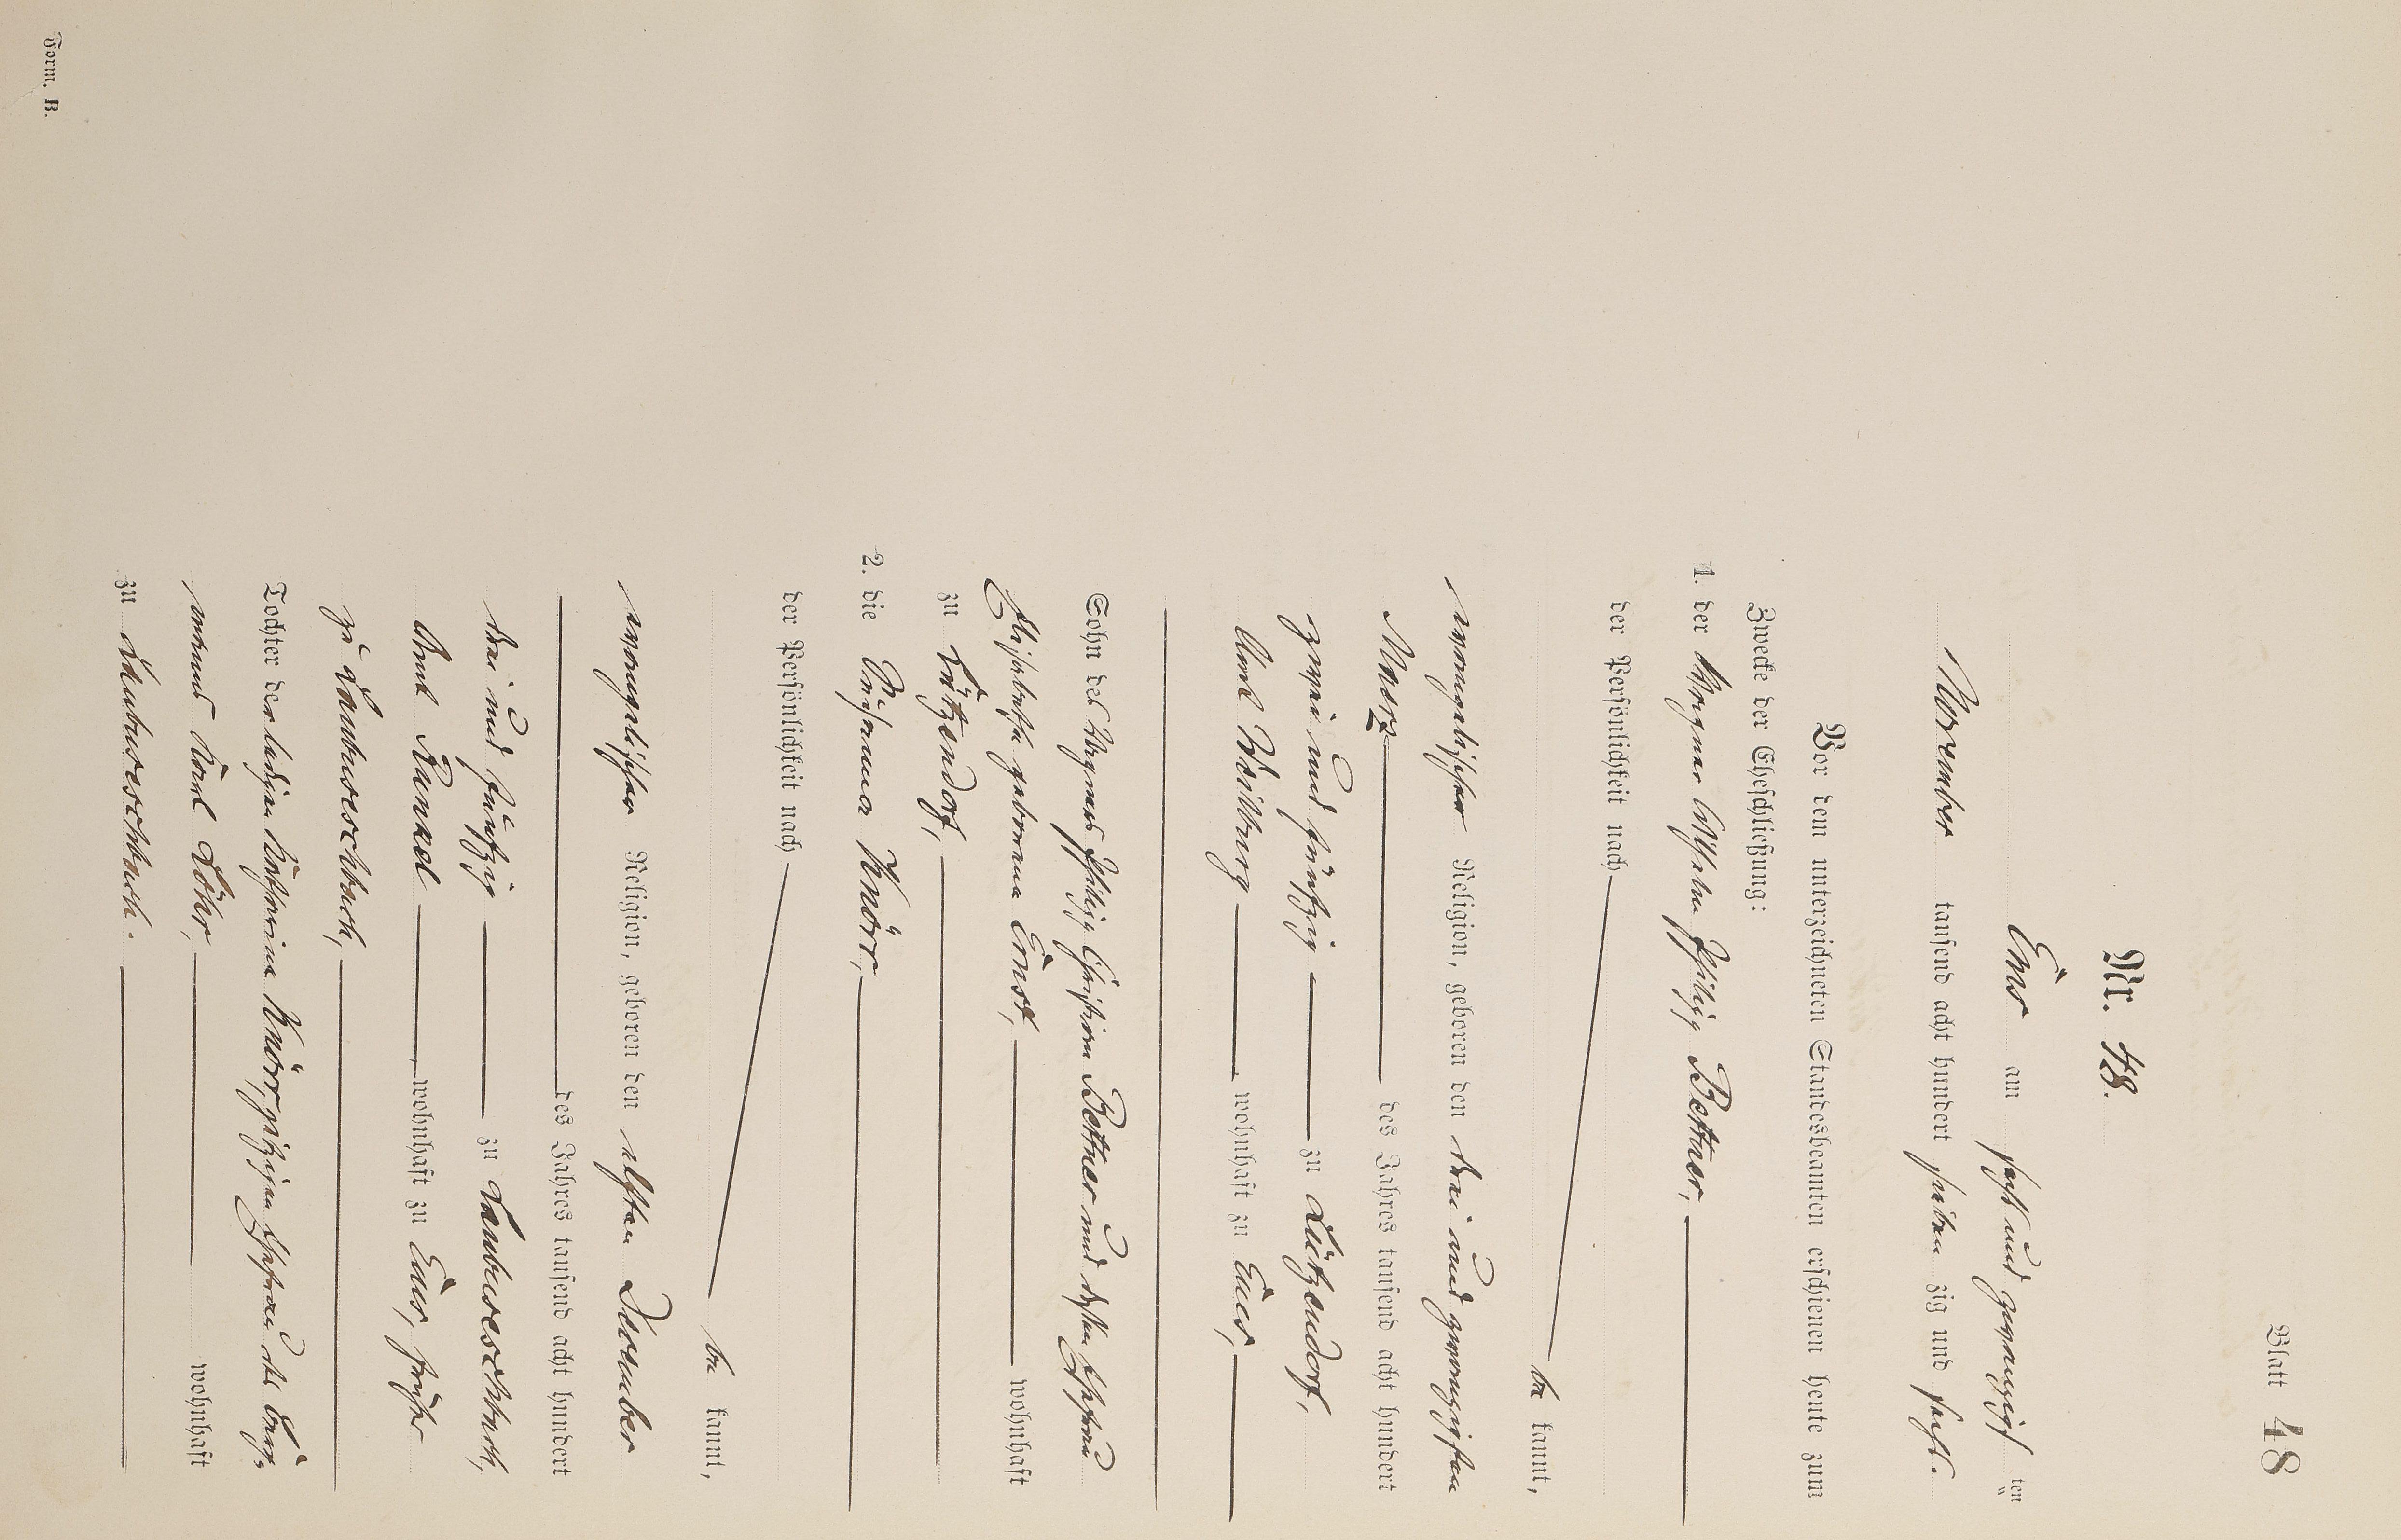 Blatt 48
Nr. 48.
Ems am sechs und zwanzigst ten
November tausend acht hundert sieben zig und sechs.
Vor dem unterzeichneten Standesbeamten erschienen heute zum
Zwecke der Eheschließung:
1. der Wagner Wilhelm Philipp Bettner,
der Persönlichkeit nach
be kannt,
evangelischer Religion, geboren den drei und zwanzigsten
Maerz des Jahres tausend acht hundert
zwei und fünfzig zu Lützendorf,
Amt Weilburg wohnhaft zu Ems,
Sohn des Wagners Philipp Christian Bettner und dessen Ehefrau
Elisabetha geborene Ernst, wohnhaft
zu Lützendorf,
2. die Susanna Knörr,
der Persönlichkeit nach
be kannt,
evangelischer Religion, geboren den elften December
des Jahres tausend acht hundert
drei und fünfzig zu Laubuseschbach,
Amt Runkel wohnhaft zu Ems, früher
zu Laubuseschbach,
Tochter der ledigen Katharina Knörr, jetzigen Ehefrau des
wohnhaft
zu Laubuseschbach.
Form. B.